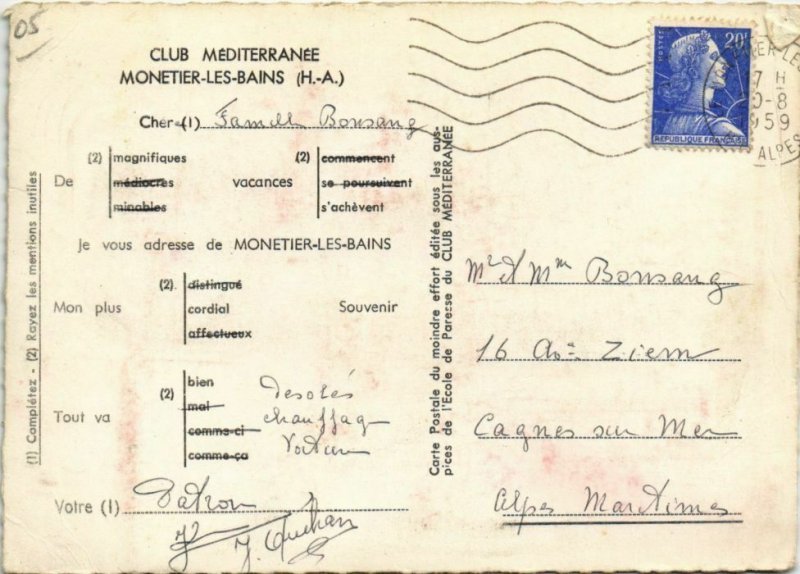 05
CLUB MÉDITERRANÉE
MONETIER-LES-BAINS (H.-A.)
Cher (1) Famille Bonsang
(2) magnifiques (2) commencent
De médiocres vacances se poursuivent
minables s'achèvent
Je vous adresse de MONETIER-LES-BAINS
(2) distingué
Mon plus cordial Souvenir
affectueux
(2) bien
mal
Tout va comme-ci
comme-ça
desolés
chauffage
Voiture
Votre (1) Patron
(1) Complétez - (2) Rayez les mentions inutiles
Carte Postale du moindre effort éditée sous les aus-
pices de l'Ecole de Paresse du CLUB MÉDITERRANÉE
POSTES 20F
REPUBLIQUE FRANÇAISE
17 H
0-8
1959
ALPES
Mr & Mme Bonsang
16 Av. Ziem
Cagnes sur Mer
Alpes Maritimes